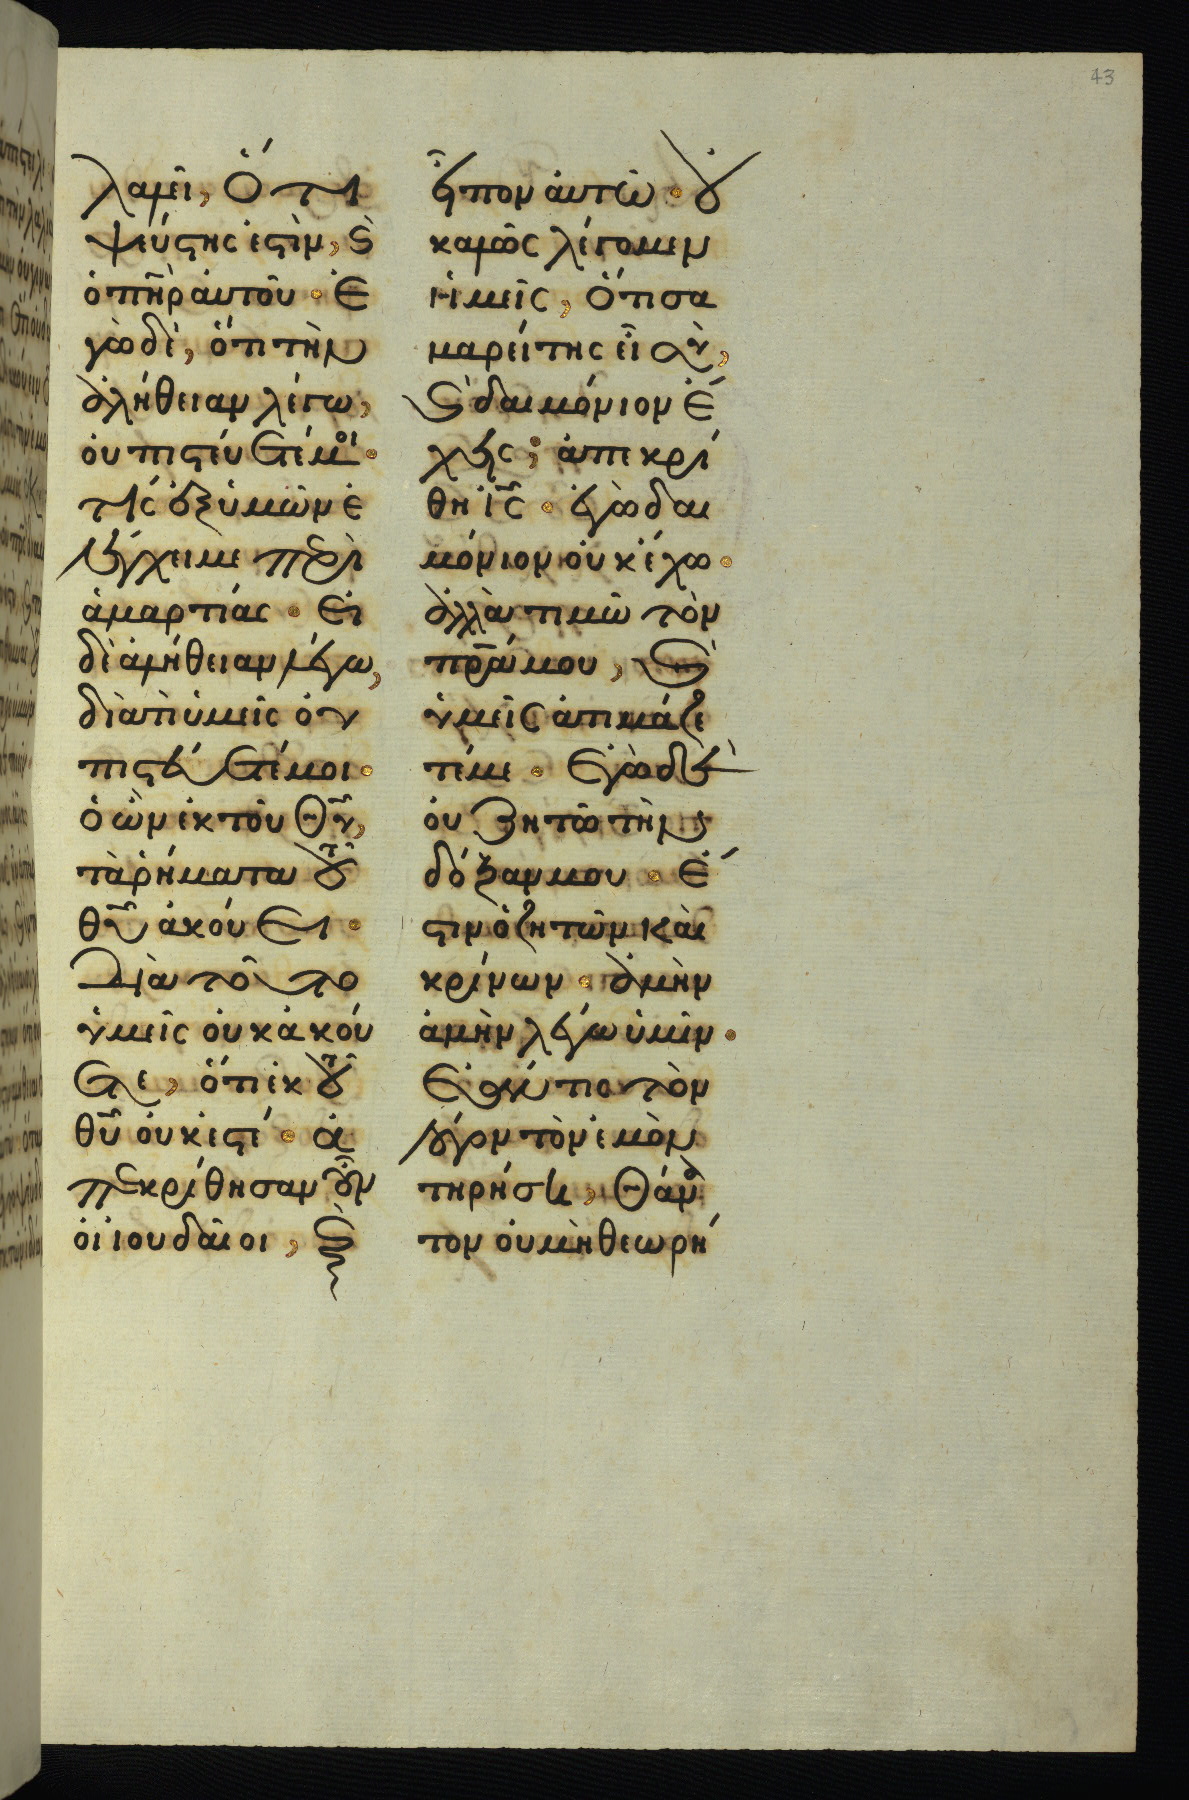 43
λαλεῖ, ὅτι
ψεύστης ἐστὶν, ϗ
ὁ πη̅ρ αὐτοῦ· ἐ
γὼ δὲ, ὅτι τὴν
ἀλήθειαν λέγω,
οὐ πιστεύετέ μοι·
τίς ἐξ ὑμῶν ἐ
λέγχει με περὶ
ἁμαρτίας· εἰ
δὲ ἀλήθειαν λέγω,
διατί ὑμεῖς οὐ
πιστεύετέ μοι·
ὁ ὢν ἐκ τοῦ θυ̅,
τὰ ῥήματα τοῦ
θυ̅ ἀκούει·
Διὰ τοῦτο
ὑμεῖς οὐκ ἀκού
ετε, ὅτι ἐκ τοῦ
θυ̅ οὐκ ἐστέ· ἀ
πεκρίθησαν οὖν
οἱ ἰουδαῖοι, ϗ
εἶπον αὐτῶ· οὐ
καλῶς λέγομεν
ἡμεῖς, ὅτι σα
μαρείτης εἶ σὺ,
ϗ δαιμόνιον ἔ
χεις; ἀπεκρί
θη ις̅· ἐγὼ δαι
μόνιον οὐκ ἔχω·
ἀλλὰ τιμῶ τὸν
πρ̅α μου, ϗ
ὑμεῖς ἀτιμάζε
τέ με· Ἐγὼ δὲ
οὐ ζητῶ τὴν
δόξαν μου· ἔ
στιν ὁ ζητῶν καὶ
κρίνων· ἀμὴν
ἀμὴν λέγω ὑμῖν·
Ἐάν τις τὸν
λόγον τὸν ἐμὸν
τηρήσει, θάνα
τον οὐ μὴ θεωρή